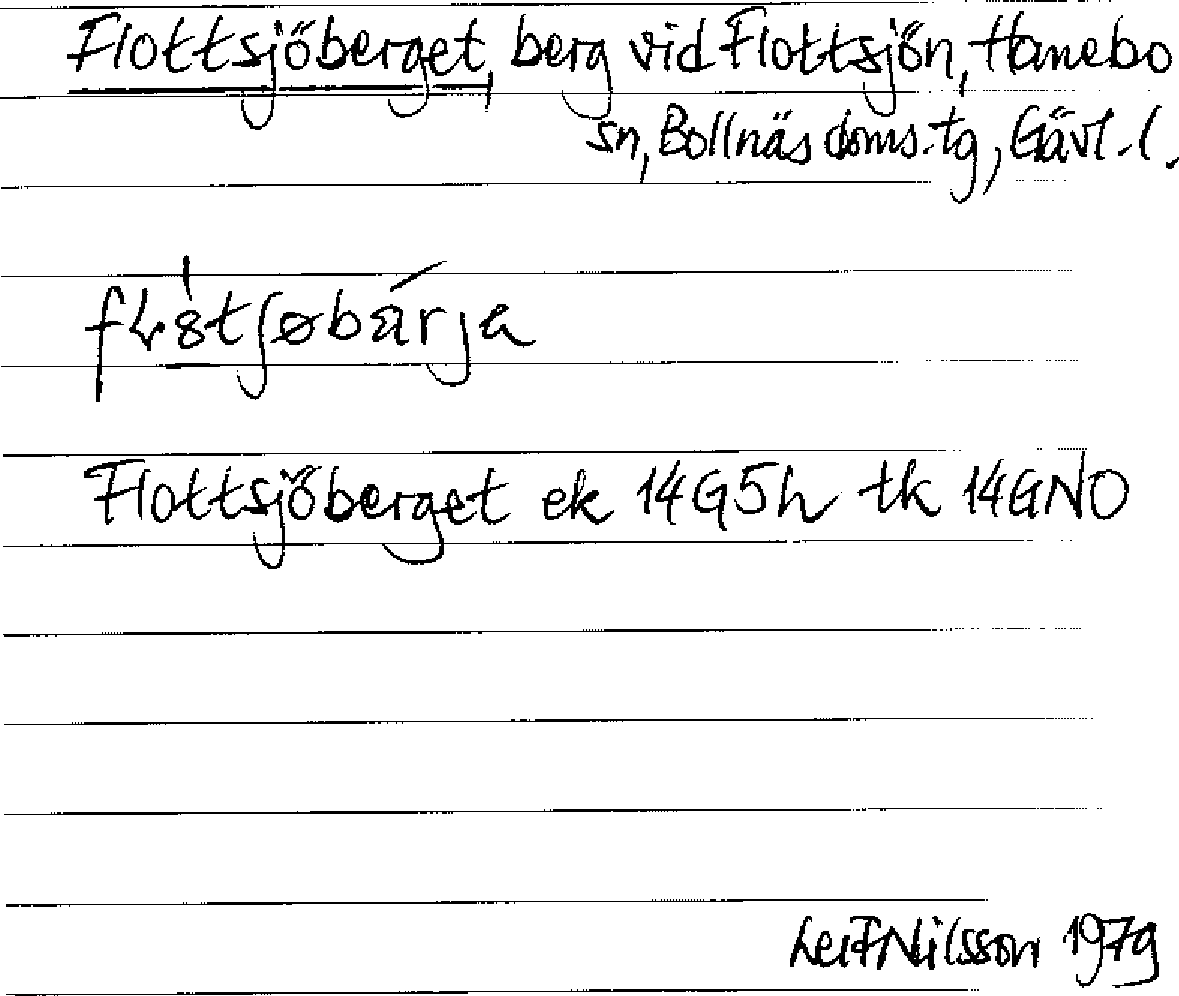 Flottsjöberget, berg vid Flottsjön, Hanebo
sn, Bollnäs doms.tg, Gävl.l.
Flottsjöberget ek 14G5h tk 14GNO
Leif Nilsson 1979